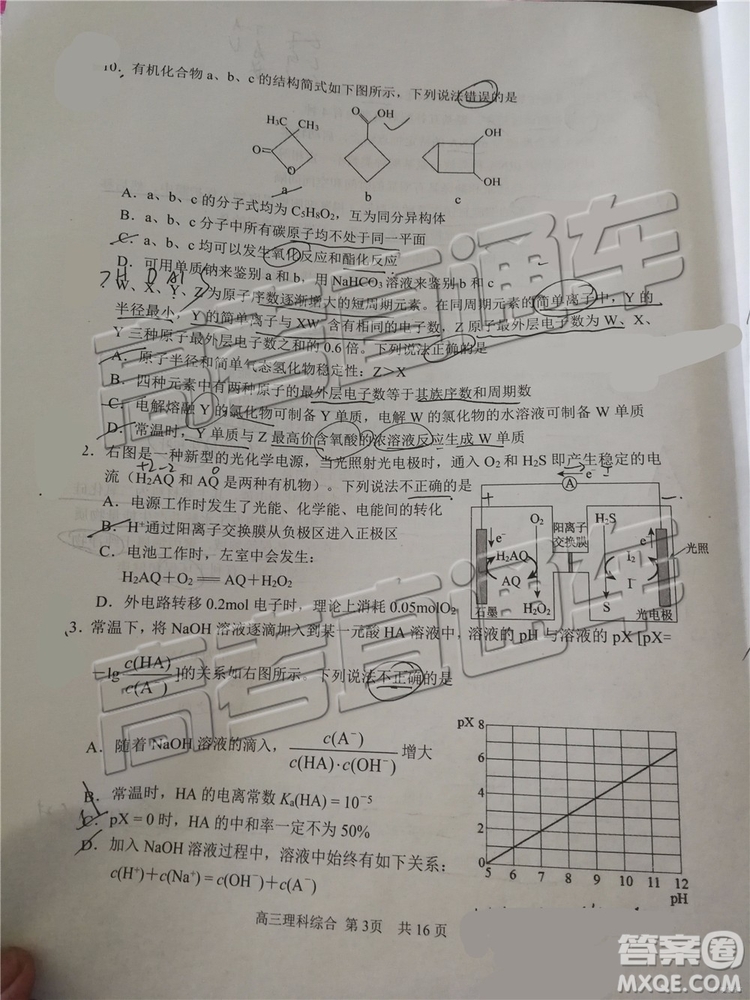 10. 有机化合物a、b、c的结构简式如下图所示，下列说法错误的是
H₃C CH₃ O O a
O OH b
OH OH c
A．a、b、c的分子式均为C₅H₈O₂，互为同分异构体
B．a、b、c分子中所有碳原子均不处于同一平面
C．a、b、c均可以发生氧化反应和酯化反应
D．可用单质钠来鉴别a和b，用NaHCO₃溶液来鉴别b和c
W、X、Y、Z为原子序数逐渐增大的短周期元素。在同周期元素的简单离子中，Y的
半径最小，Y的简单离子与XW⁻含有相同的电子数，Z原子最外层电子数为W、X、
Y三种原子最外层电子数之和的0.6倍。下列说法正确的是
A．原子半径和简单气态氢化物稳定性：Z＞X
B．四种元素中有两种原子的最外层电子数等于其族序数和周期数
C．电解熔融Y的氯化物可制备Y单质，电解W的氯化物的水溶液可制备W单质
D．常温时，Y单质与Z最高价含氧酸的浓溶液反应生成W单质
2．右图是一种新型的光化学电源，当光照射光电极时，通入O₂和H₂S即产生稳定的电
流（H₂AQ和AQ是两种有机物）。下列说法不正确的是
A．电源工作时发生了光能、化学能、电能间的转化
B．H⁺通过阳离子交换膜从负极区进入正极区
C．电池工作时，左室中会发生：
H₂AQ＋O₂＝AQ＋H₂O₂
D．外电路转移0.2mol电子时，理论上消耗0.05molO₂
e⁻ A
＋ －
O₂ 阳离子交换膜 H₂S
e⁻ H₂AQ AQ I₃⁻ I⁻ e⁻ 光照
石墨 H₂O₂ S 光电极
3．常温下，将NaOH溶液逐滴加入到某一元酸HA溶液中，溶液的pH与溶液的pX [pX=
−lg c(HA)/c(A⁻)]的关系如右图所示。下列说法不正确的是
A．随着NaOH溶液的滴入，c(A⁻)/c(HA)·c(OH⁻)增大
B．常温时，HA的电离常数Kₐ(HA)＝10⁻⁵
C．pX＝0时，HA的中和率一定不为50%
D．加入NaOH溶液过程中，溶液中始终有如下关系：
c(H⁺)＋c(Na⁺)＝c(OH⁻)＋c(A⁻)
pX 8
6
4
2
0
5 6 7 8 9 10 11 12
pH
高三理科综合 第3页 共16页
高考直通车
高考直通车
答案圈
MXQE.COM